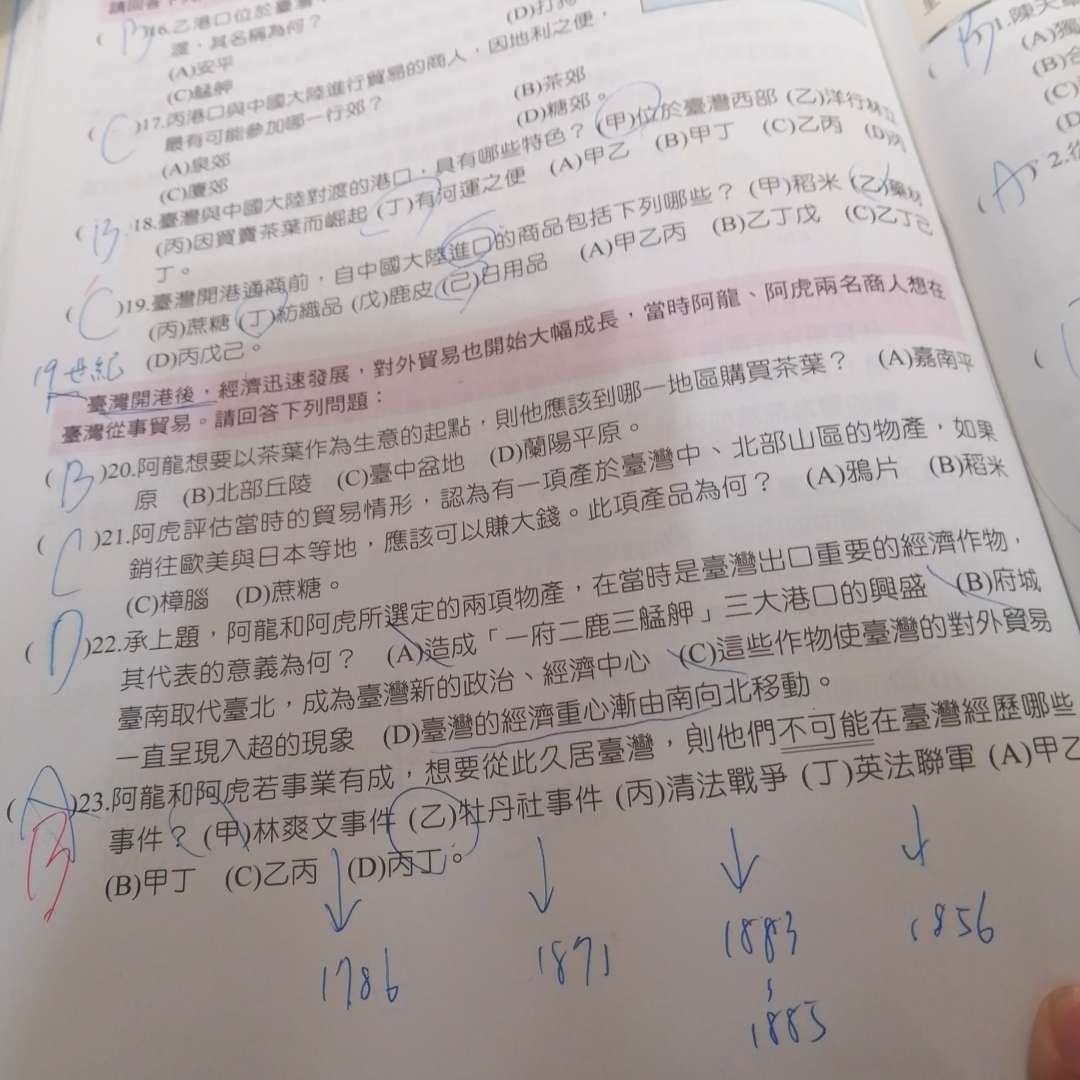 請回答下
( B )16.乙港口位於臺灣
渡,其名稱為何?
(A)安平
(C)艋舺 (D)打狗
( C )17.丙港口與中國大陸進行貿易的商人,因地利之便,
最有可能參加哪一行郊?
(A)泉郊 (B)茶郊
(C)廈郊 (D)糖郊。
( B )18.臺灣與中國大陸對渡的港口,具有哪些特色?(甲)位於臺灣西部 (乙)洋行林立
(丙)因買賣茶葉而崛起 (丁)有河運之便 (A)甲乙 (B)甲丁 (C)乙丙 (D)丙
丁。
( C )19.臺灣開港通商前,自中國大陸進口的商品包括下列哪些?(甲)稻米 (乙)藥材
(丙)蔗糖 (丁)紡織品 (戊)鹿皮 (己)日用品 (A)甲乙丙 (B)乙丁戊 (C)乙丁己
(D)丙戊己。
19世紀
臺灣開港後,經濟迅速發展,對外貿易也開始大幅成長,當時阿龍、阿虎兩名商人想在
臺灣從事貿易。請回答下列問題:
( B )20.阿龍想要以茶葉作為生意的起點,則他應該到哪一地區購買茶葉? (A)嘉南平
原 (B)北部丘陵 (C)臺中盆地 (D)蘭陽平原。
( C )21.阿虎評估當時的貿易情形,認為有一項產於臺灣中、北部山區的物產,如果
銷往歐美與日本等地,應該可以賺大錢。此項產品為何? (A)鴉片 (B)稻米
(C)樟腦 (D)蔗糖。
( D )22.承上題,阿龍和阿虎所選定的兩項物產,在當時是臺灣出口重要的經濟作物,
其代表的意義為何? (A)造成「一府二鹿三艋舺」三大港口的興盛 (B)府城
臺南取代臺北,成為臺灣新的政治、經濟中心 (C)這些作物使臺灣的對外貿易
一直呈現入超的現象 (D)臺灣的經濟重心漸由南向北移動。
( A )23.阿龍和阿虎若事業有成,想要從此久居臺灣,則他們不可能在臺灣經歷哪些
B
事件?(甲)林爽文事件 (乙)牡丹社事件 (丙)清法戰爭 (丁)英法聯軍 (A)甲乙
(B)甲丁 (C)乙丙 (D)丙丁。
1786 1871 1883 1856
1885
B 1.陳天
(A)獨
(B)合
(C)
(D
( A ) 2.從